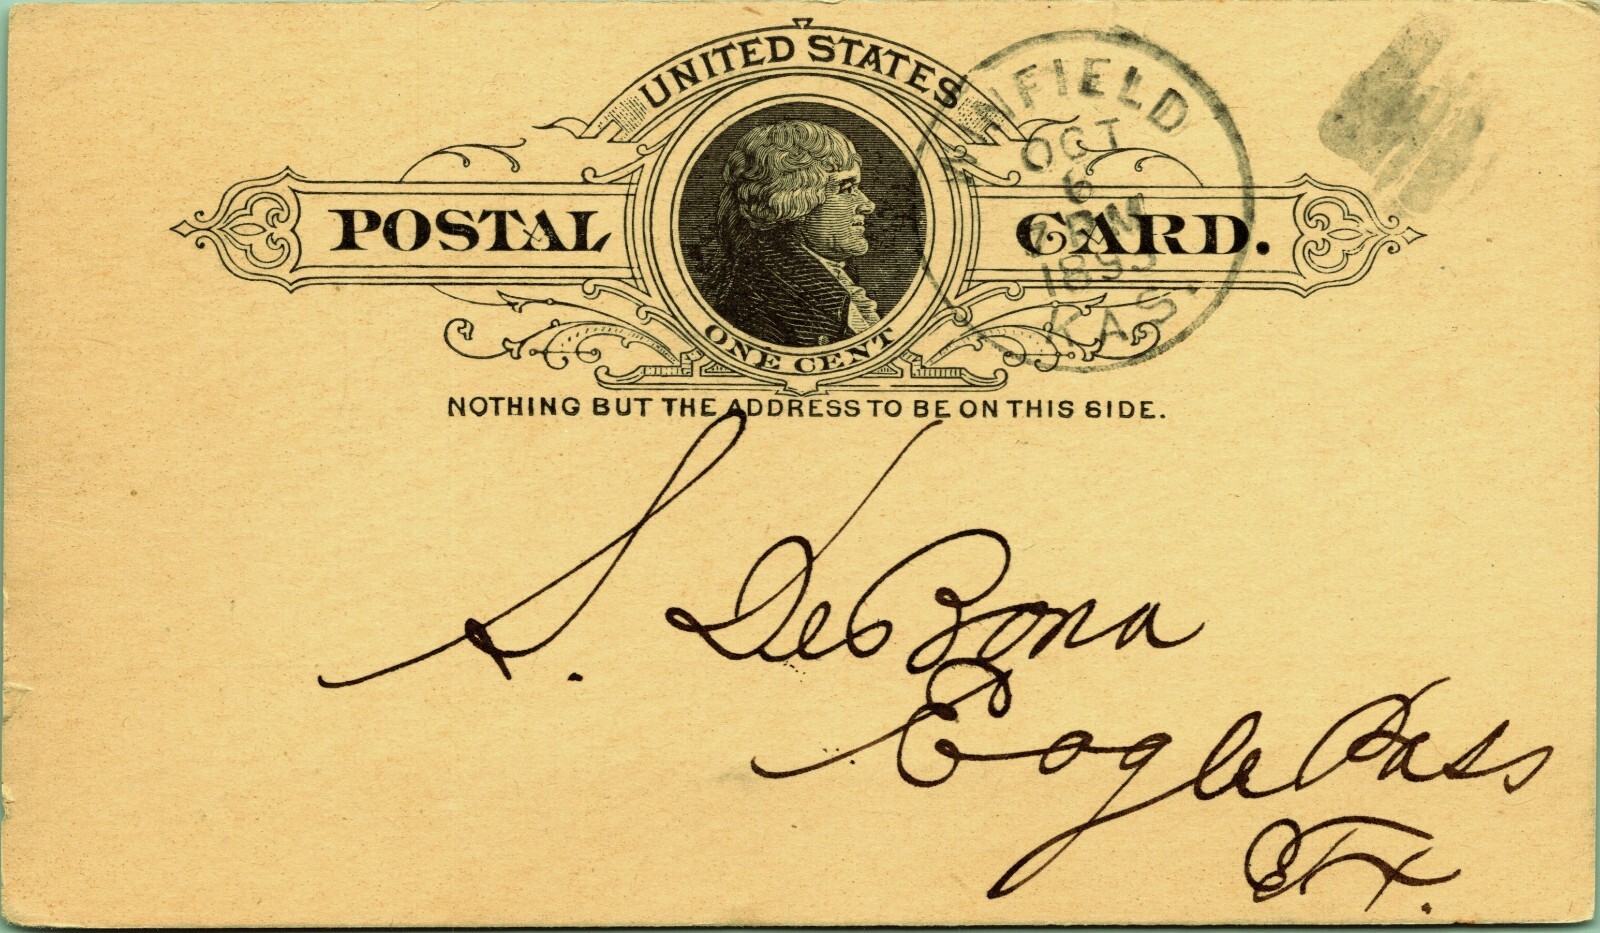 UNITED STATES
POSTAL CARD.
ONE CENT
NOTHING BUT THE ADDRESS TO BE ON THIS SIDE.
NFIELD
OCT
6
PM
KAS.
S. DeBona
Eagle Pass
Tx.